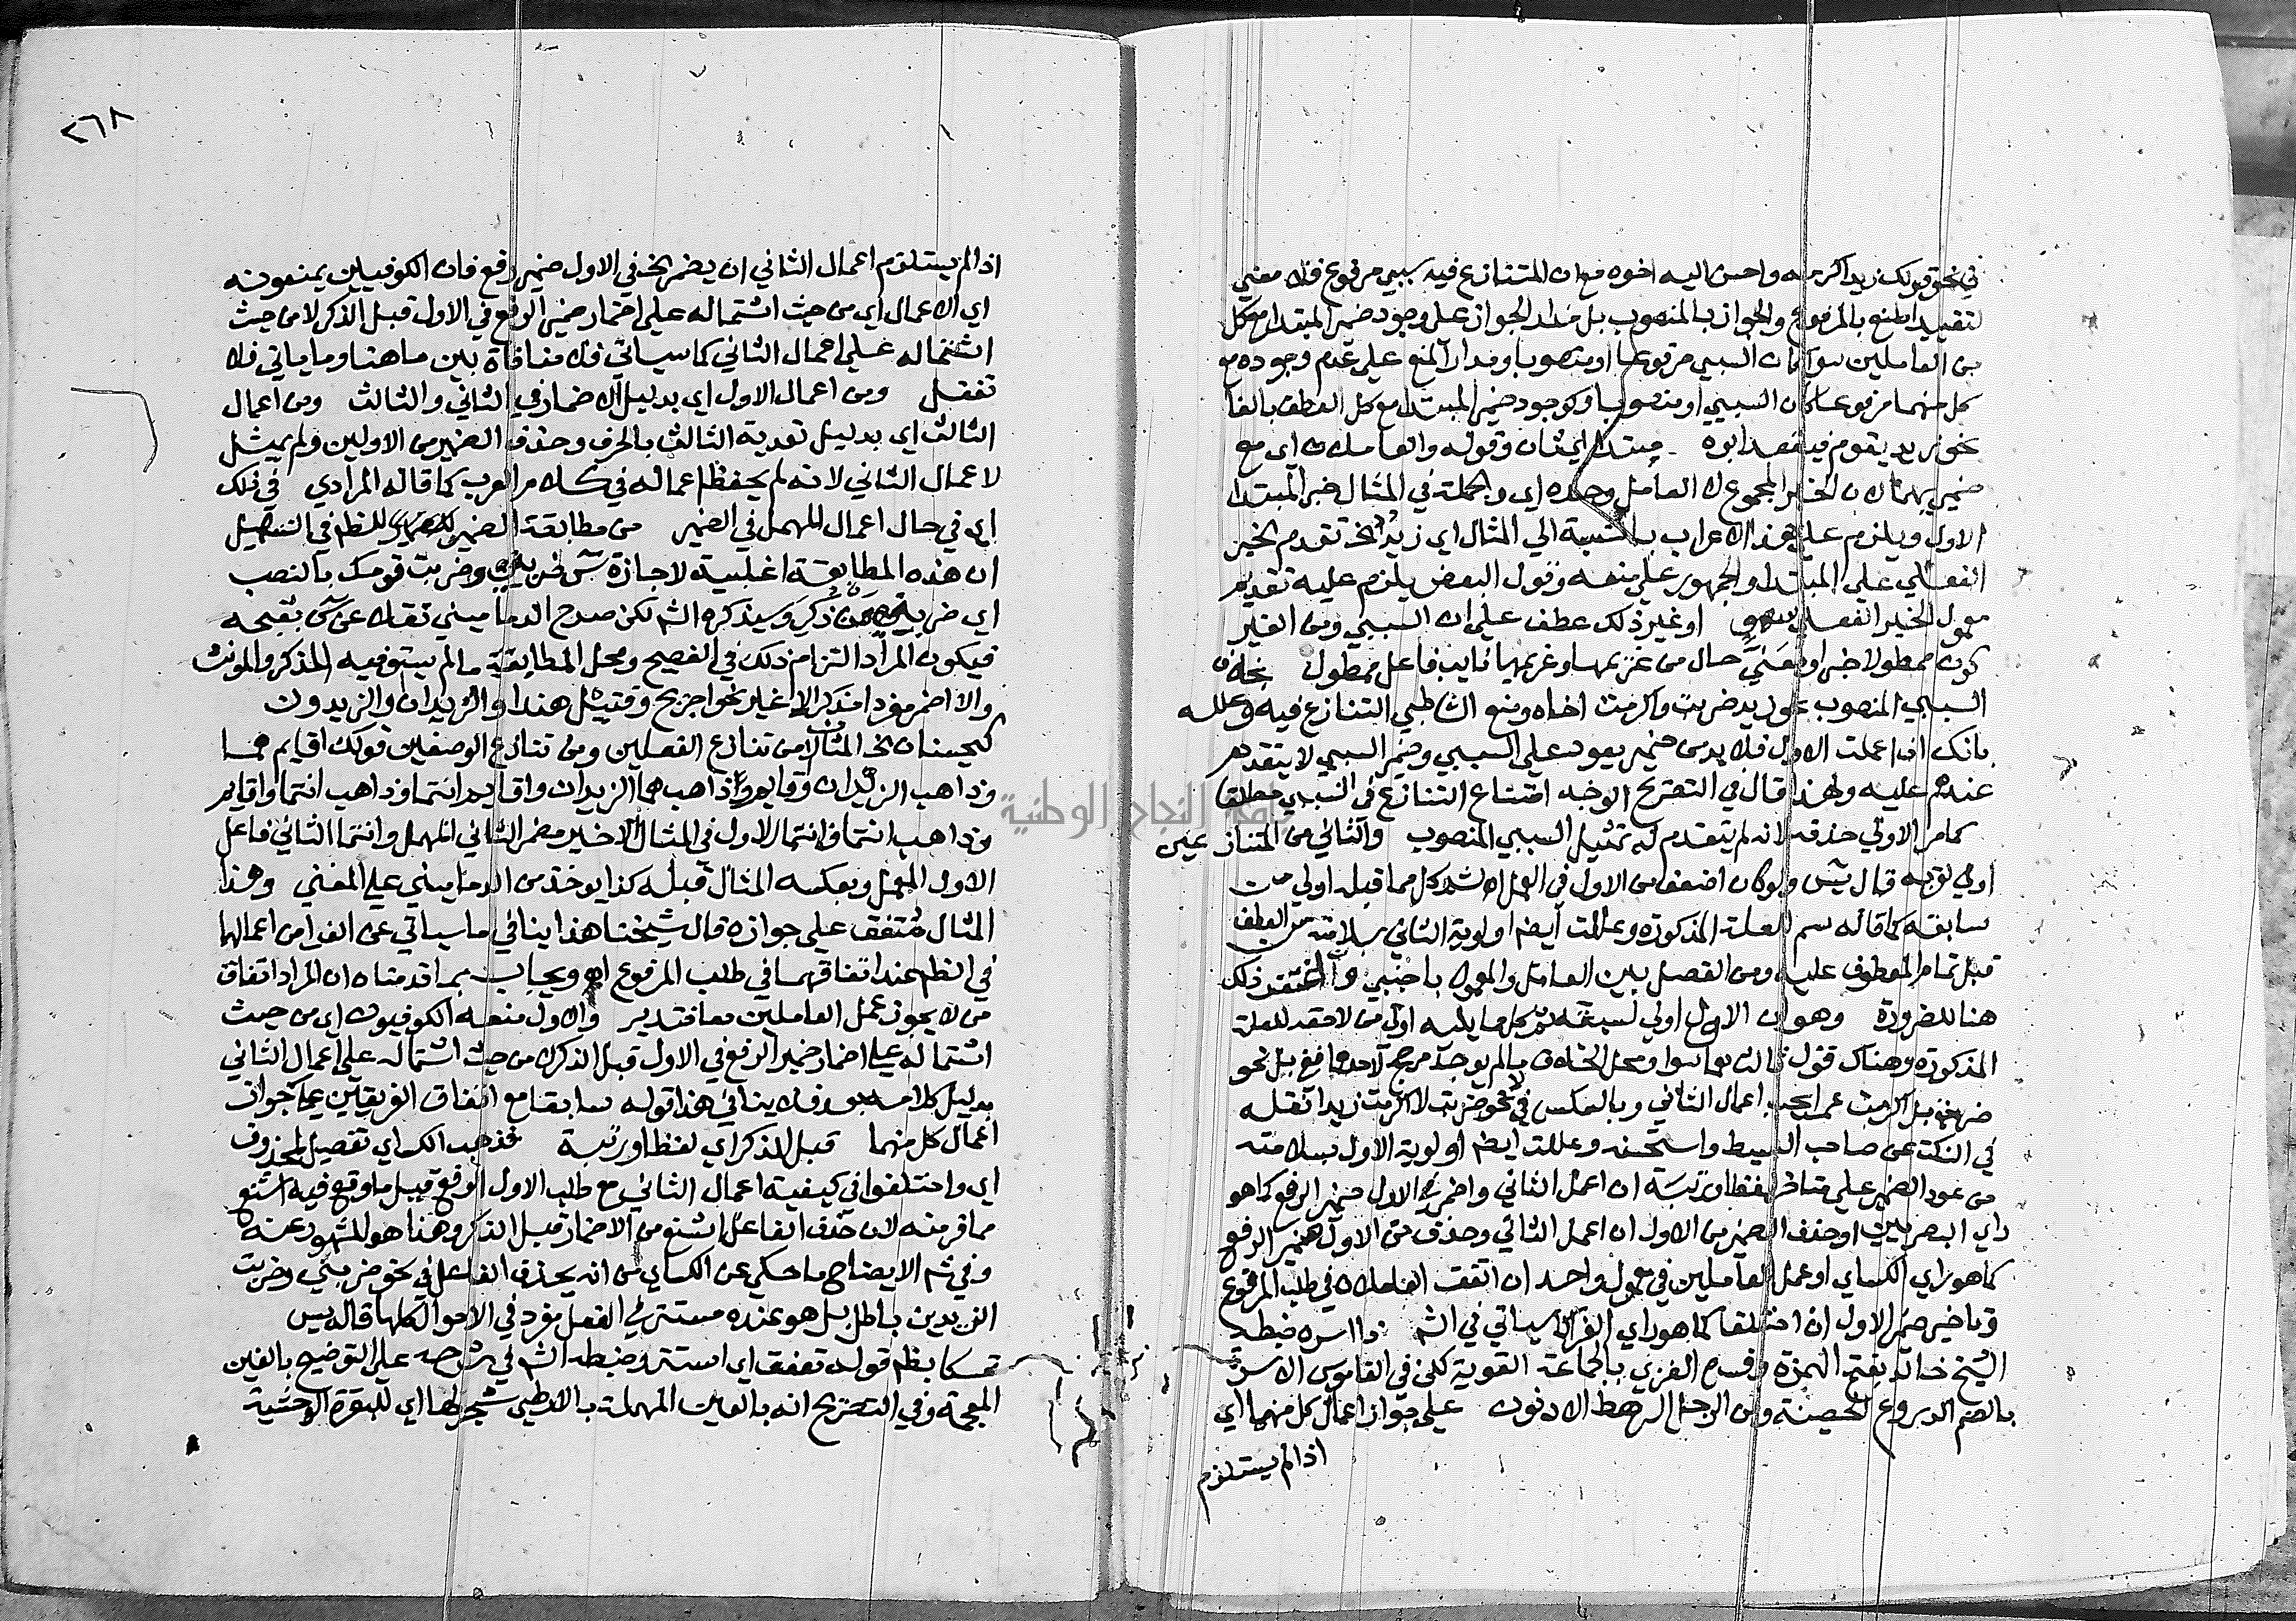 في نحو قولك زيد اكرمه واحسن اليه اخوه مع ان المتنازع فيه سببي مرفوع فلا معني
لتقييد المنع بالمرفوع والجواز بالمنصوب بل مدار الجواز علي وجود ضمير المبتدا مع كل
من العاملين سوا كان السببي مرفوعا او منصوبا ومدار المنع علي عدم وجوده مع
كل منهما مرفوعا كان السببي او منصوبا وكوجود ضمير المبتدا مع كل العطف بالفا
نحو زيد يقوم فيقعد ابوه مبتدا اي ثان وقوله والعاملان اي مع
ضميريهما لان الخبر المجموع لا العامل وحده اي والجملة في المثال خبر المبتدا
الاول ويلزم علي هذا الاعراب بالنسبة الي المثال اي زيد الخ تقدم الخبر
الفعلي علي المبتدا والجمهور علي منعه وقول البعض يلزم عليه تقديم
معمول الخبر الفعلي سهو او غير ذلك عطف علي ان السببي ومن الغير
كون ممطولا خبرا ومعني حال من غريمها وغريمها نايب فاعل ممطول بخلاف
السببي المنصوب نحو زيد ضربت واكرمت اخاه ومنع الشاطبي التنازع فيه وعلله
بانك ان اعملت الاول فلا بد من ضمير يعود علي السببي وضمير السببي لا يتقدم
عندهم عليه ولهذا قال في التصريح الوجه امتناع التنازع في السببي مطلقا
كما مر الاولي حذفه لانه لم يتقدم له تمثيل السببي المنصوب والثاني من المتنازعين
اولي لقربه قال يس ولو كان اضعف من الاول في العمل كل مما قبله اولي من
سابقه كما قاله سم للعلة المذكورة وعللت ايضا اولوية الثاني بسلامته من العطف
قبل تمام المعطوف عليه ومن الفصل بين العامل والمعمول باجنبي واغتفر ذلك
هنا للضرورة وهو ان الاول اولي لسبقه ثم كل ما يليه اولي من لاحقه للعلة
المذكورة وهناك قول ثالث انهما سوا ومحل الخلاف ما لم يوجد مرجح لاحدهما ففي بل نحو
ضربت بل اكرمت عمرا يجب اعمال الثاني وبالعكس في نحو ضربت لا اكرمت زيدا نقله
في النكت عن صاحب البسيط واستحسنه وعللت ايضا اولوية الاول بسلامته
من عود الضمير علي متاخر لفظا ورتبة ان اعمل الثاني واضمر في الاول ضمير الرفع كما هو
راي البصريين او حذف الضمير من الاول ان اعمل الثاني وحذف من الاول ضمير الرفع
كما هو راي الكساي او عمل العاملين في معمول واحد ان اتفق العاملان في طلب المرفوع
وتاخير ضمير الاول ان اختلفا كما هو راي الفرا كما سياتي في الشم ذا اسره ضبطه
الشيخ خالد بفتح الهمزة وفسره الغزي بالجماعة القوية لكن في القاموس الاسرة
بالضم الدروع الحصينة ومن الرجل الرهط الادنون علي جواز اعمال كل منهما اي
اذا لم يستلزم
٢٦٨
اذا لم يستلزم اعمال الثاني ان يضمر الخ في الاول ضمير رفع فان الكوفيين يمنعونه
اي الاعمال اي من حيث اشتماله علي اضمار ضمير الرفع في الاول قبل الذكر لا من حيث
اشتماله علي اعمال الثاني كما سياتي فلا منافاة بين ما هنا وما ياتي فلا
تغفل ومن اعمال الاول اي بدليل الاضمار في الثاني والثالث ومن اعمال
الثالث اي بدليل تعدية الثالث بالحرف وحذف الضمير من الاولين ولم يمثل
لاعمال الثاني لانه لم يحفظ اعماله في كلام العرب كما قاله المرادي في ذلك
اي في حال اعمال المهمل في الضمير من مطابقة الضمير للظاهر في التسهيل
ان هذه المطابقة اغلبية لاجازة س ضربني وضربت قومك بالنصب
اي ضربني من ذكر وسيذكره الشم لكن صرح الدماميني نقلا عن س بقبحه
فيكون المراد التزام ذلك في الفصيح ومحل المطابقة ما لم يستو فيه المذكر والمونث
والا اضمر مفردا مذكرا لا غير نحو اجريح وقتيل هندا والزيدان والزيدون
كيحسنان الخ المثالان من تنازع الفعلين ومن تنازع الوصفين قولك اقايم هما
وذاهب الزيدان وقايم وذاهب هما الزيدان واقايم انتما وذاهب انتما واقايم
وذاهب انتما وانتما الاول في المثال الاخير ضمير الثاني المهمل وانتما الثاني فاعل
الاول المعمل وبعكسه المثال قبله كذا يوخذ من الدماميني علي المغني وهذا
المثال متفق علي جوازه قال شيخنا هذا ينافي ما سياتي عن الفرا من اعمالهما
في الظم عند اتفاقهما في طلب المرفوع اه ويجاب بما قدمناه ان المراد اتفاق
من لا يجوز عمل العاملين معا فتدبر والاول منعه الكوفيون اي من حيث
اشتماله علي اضمار ضمير الرفع في الاول قبل الذكر لا من حيث اشتماله علي اعمال الثاني
بدليل كلامه بعد فلا ينافي هذا قوله سابقا مع اتفاق الفريقين علي جواز
اعمال كل منهما قبل الذكر اي لفظا ورتبة فذهب الكساي تفصيل لمحذوف
اي واختلفوا في كيفية اعمال الثاني مع طلب الاول الرفع قيل ما وقع فيه اشنع
مما فر منه لان حذف الفاعل اشنع من الاضمار قبل الذكر وهذا هو المشهور عنه
وفي شم الايضاح ما حكي عن الكساي من انه يحذف الفاعل في نحو ضربني وضربت
الزيدين باطل بل هو عنده مستتر في الفعل مفرد في الاحوال كلها قاله يس
تمسكا بظم قوله تعفق اي استتر وضبطه الشم في شرحه علي التوضيح بالغين
المعجمة وفي التصريح انه بالعين المهملة بالارطي شجر لها اي للبقرة الوحشية